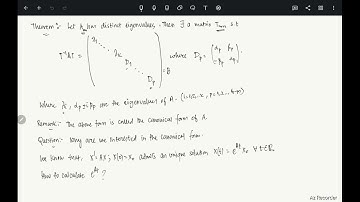 Theorem: Let A has distinct eigenvalues. Then ∃ a matrix T_{n×n} s.t
T⁻¹AT = ( λ₁ ⋱ λ_k D₁ ⋱ D_p ) = B where D_p = ( α_p β_p
-β_p α_p )
Where λ_k, α_p ± iβ_p are the eigenvalues of A.
Remark: The above form is called the canonical form of A.
Question: Why are we interested in the canonical form.
We know that, X' = AX ; X(0) = X₀ admits an unique solution X(t) = e^{At} X₀ ∀ t∈ℝ.
How to calculate e^{At} ?
Az Recorder